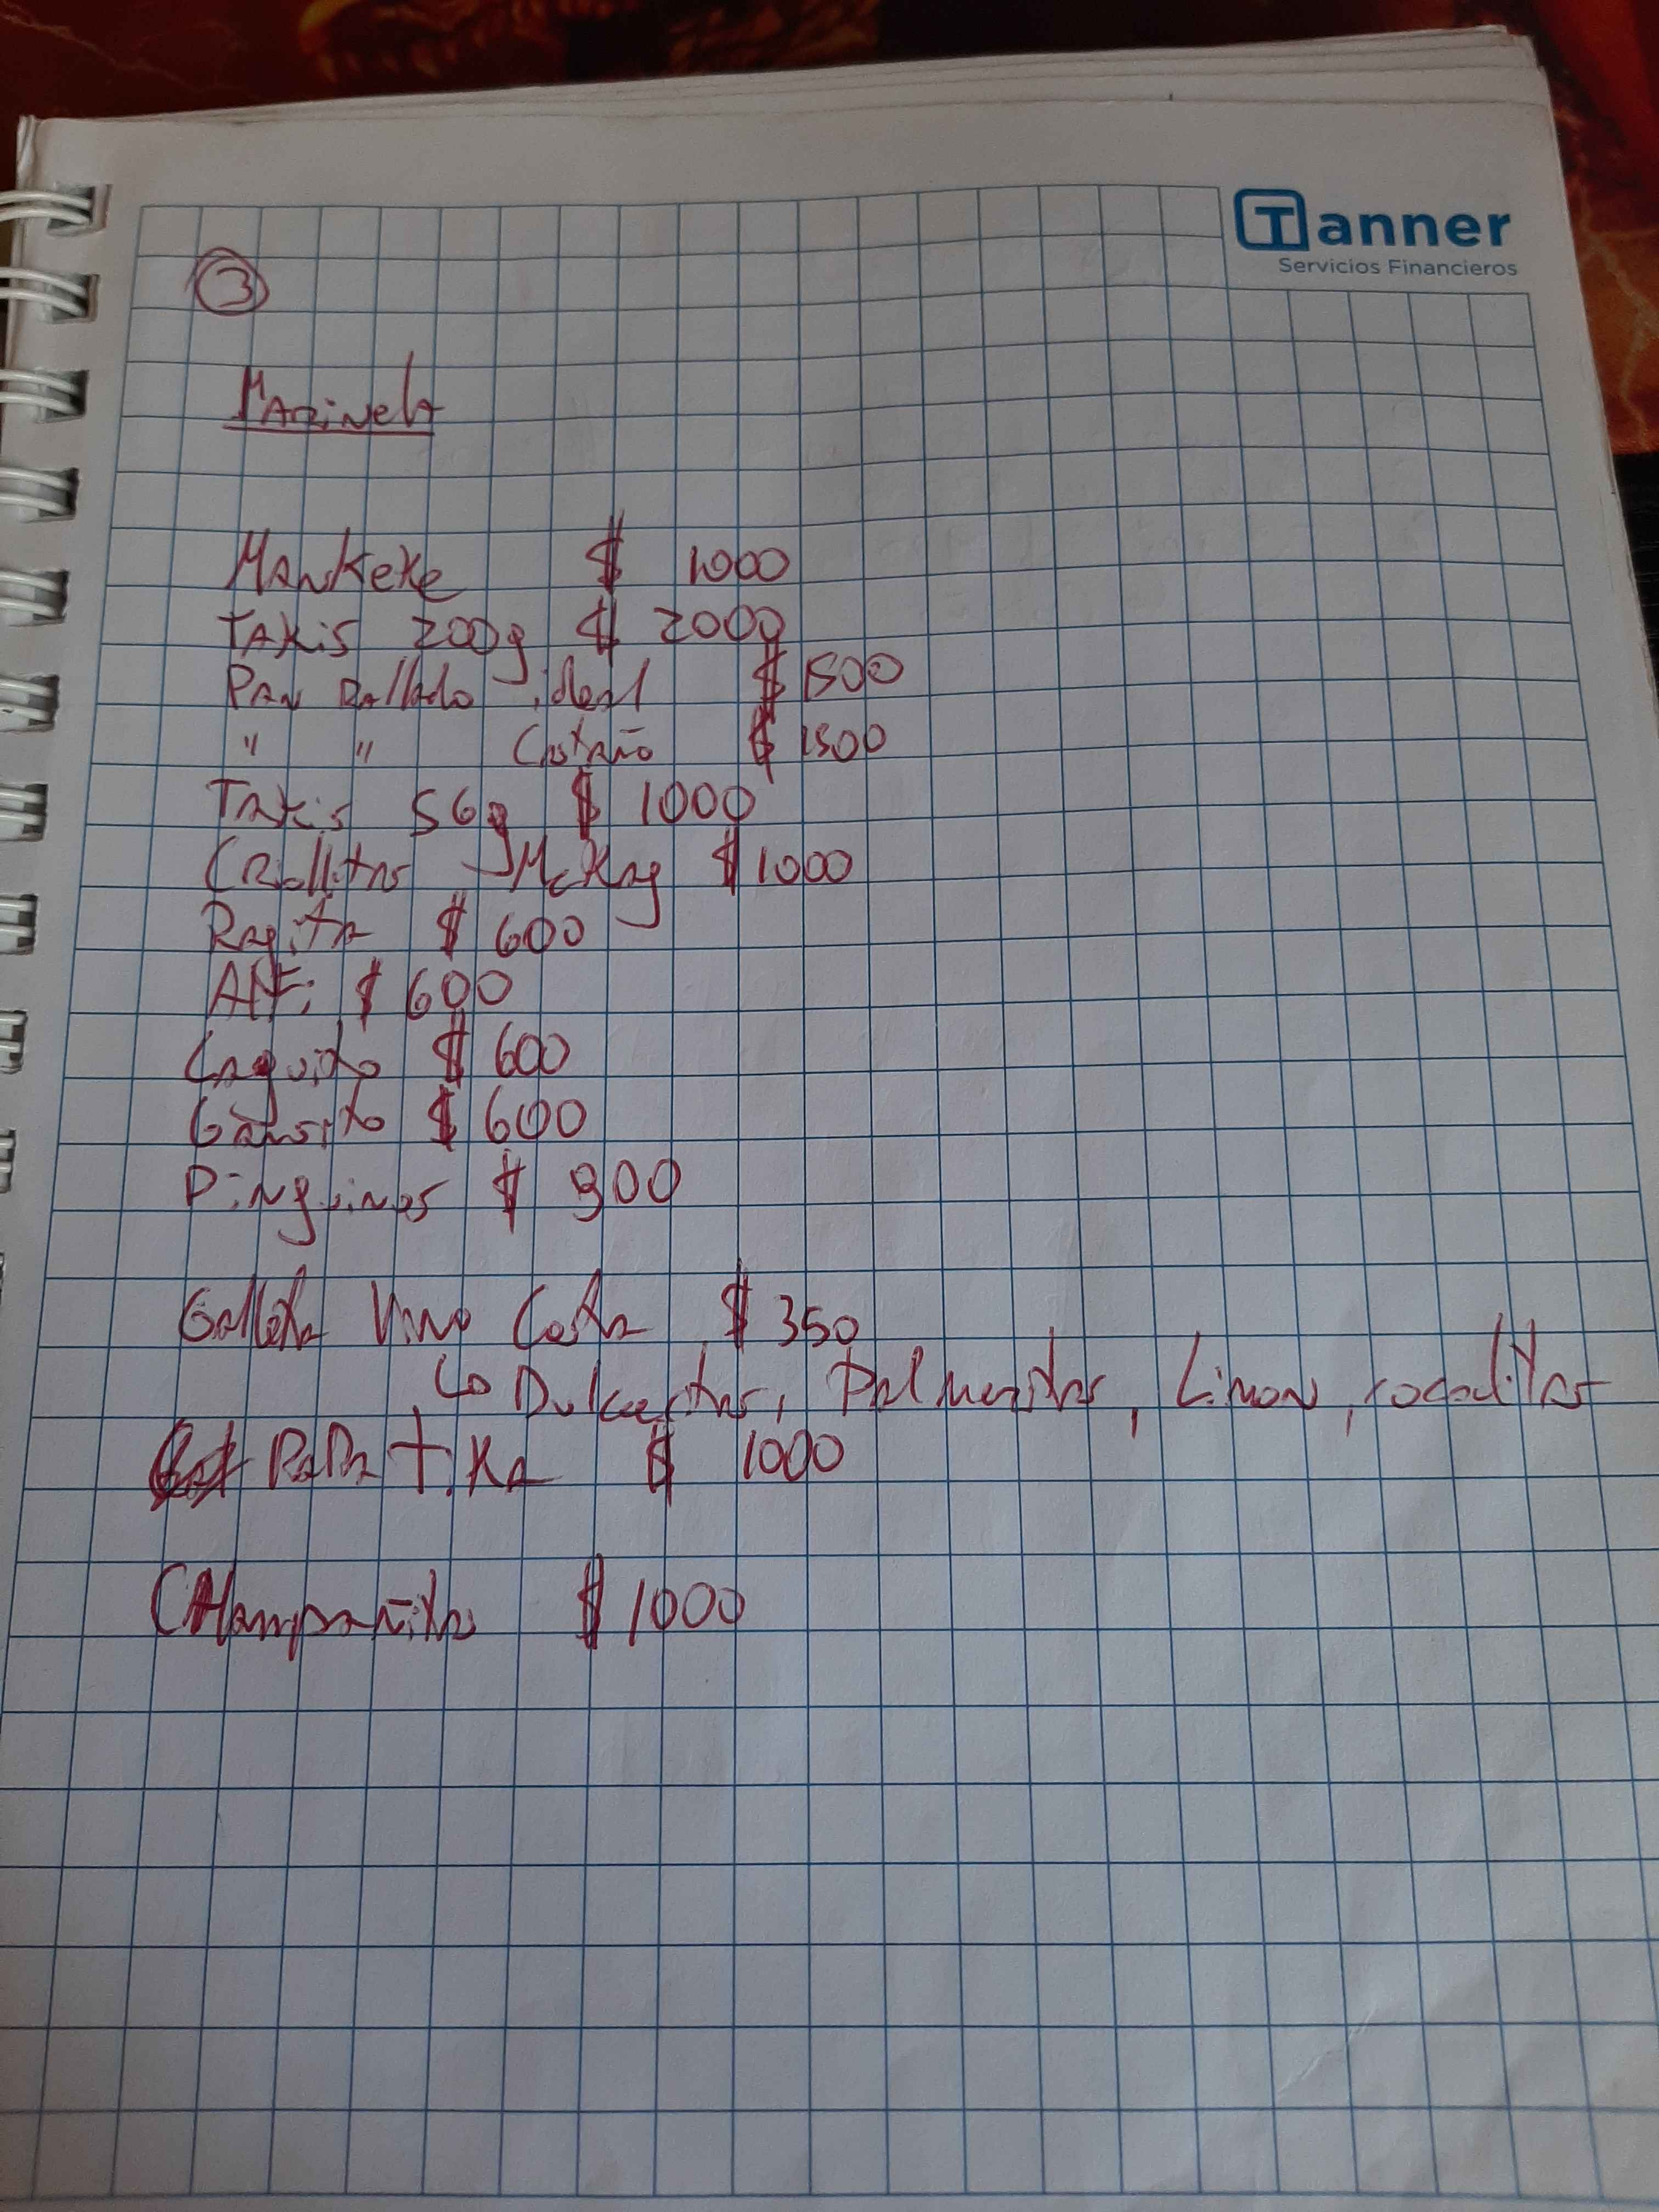 Tanner
Servicios Financieros
3
Marinela
Mankeke $ 1000
Takis 200g $ 2000
Pan Rallado ideal $ 1500
" " Castaño $ 1500
Takis 56g $ 1000
Criollitas McKay $ 1000
Rayita $ 600
Alfi $ 600
$ 600
Gansito $ 600
Pinguinos $ 900
Galleta Vino Costa $ 350
↳ Dulcecitas, Palmeritas, Limon, rococlitas
Papa Tika $ 1000
CHampañita $ 1000